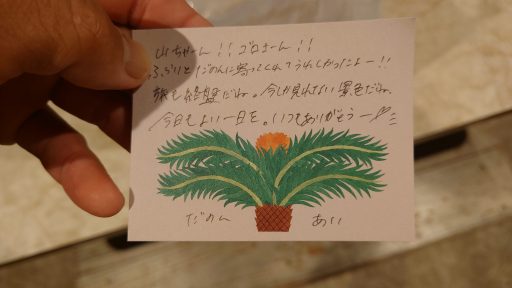 山ちゃーん!!ゴロさーん!!
ふらりとだのんに寄ってくれてうれしかったよー!!
旅も終盤だね。今しか見れない景色だね、
今日もよい一日を。いつもありがとうー
だのん あい